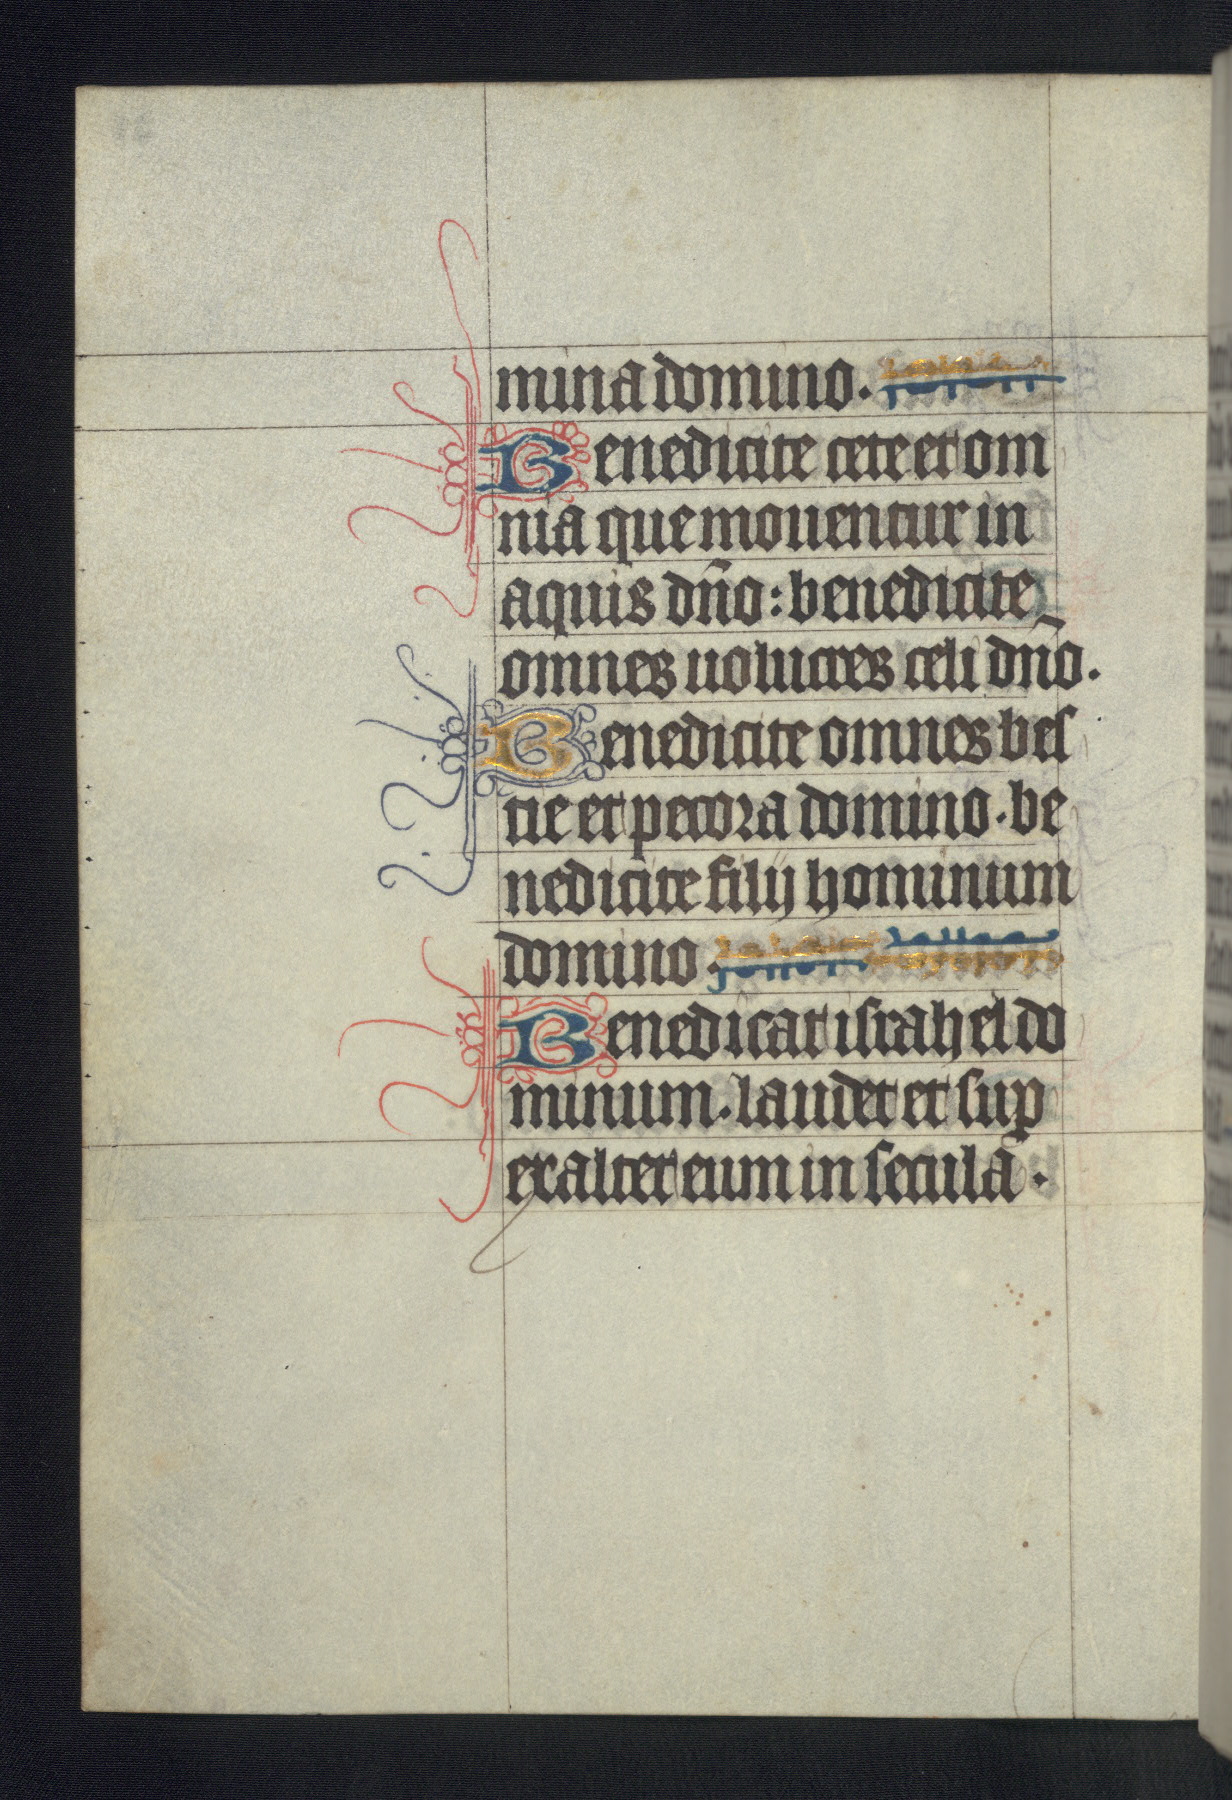 mina domino.
Benedicite cete et om
nia que mouentur in
aquis dn̄o: benedicite
omnes uolucres celi dn̄o.
Benedicite omnes bes
tie et pecora domino. be
nedicite filij hominum
domino.
Benedicat israhel do
minum. laudet et suꝑ
exaltet eum in secula.